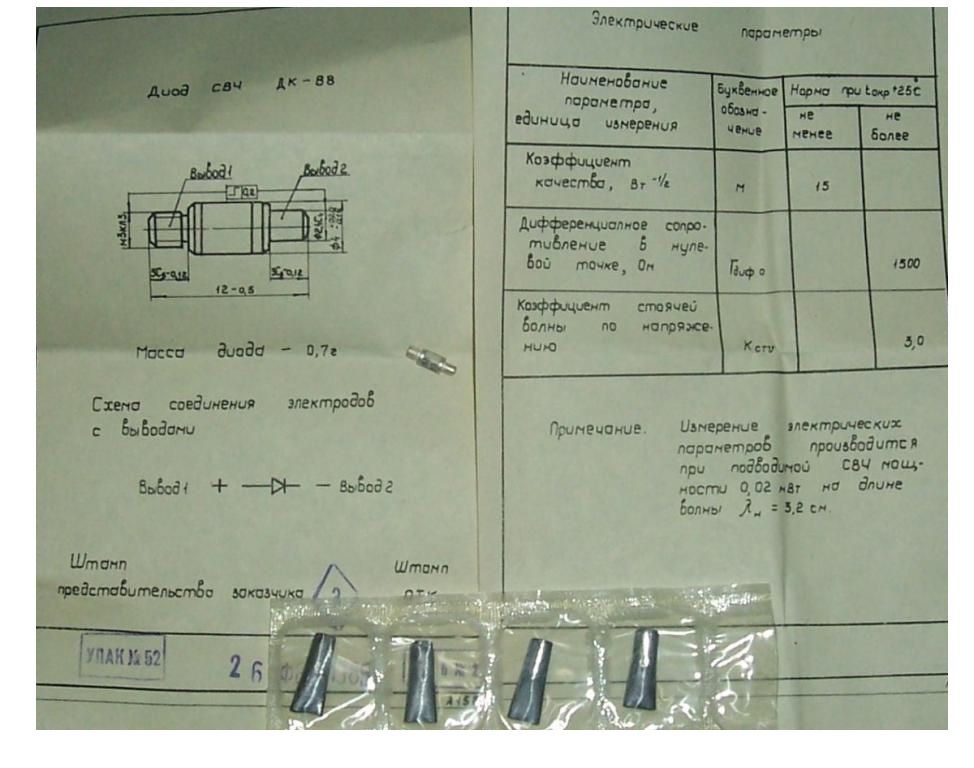 Диод СВЧ ДК-В8
Вывод 1
Вывод 2
0,2
12-0,5
Масса диода - 0,7г
Схема соединения электродов
с выводами
Вывод 1 + - Вывод 2
Штамп
представительства заказчика
Штамп
ОТК
УПАК № 52
2 6
Электрические параметры
Наименование
параметра,
единица измерения
Буквенное
обозна-
чение
Норма при tокр +25°С
не
менее
не
более
Коэффициент
качества, Вт -1/2
М
15
Дифференциалное сопро-
тивление в нуле-
вой точке, Ом
Гдиф о
1500
Коэффициент стоячей
волны по напряже-
нию
К стU
3,0
Примечание.
Измерение электрических
параметров производится
при подводимой СВЧ мощ-
ности 0,02 мВт на длине
волны λн = 3,2 см.